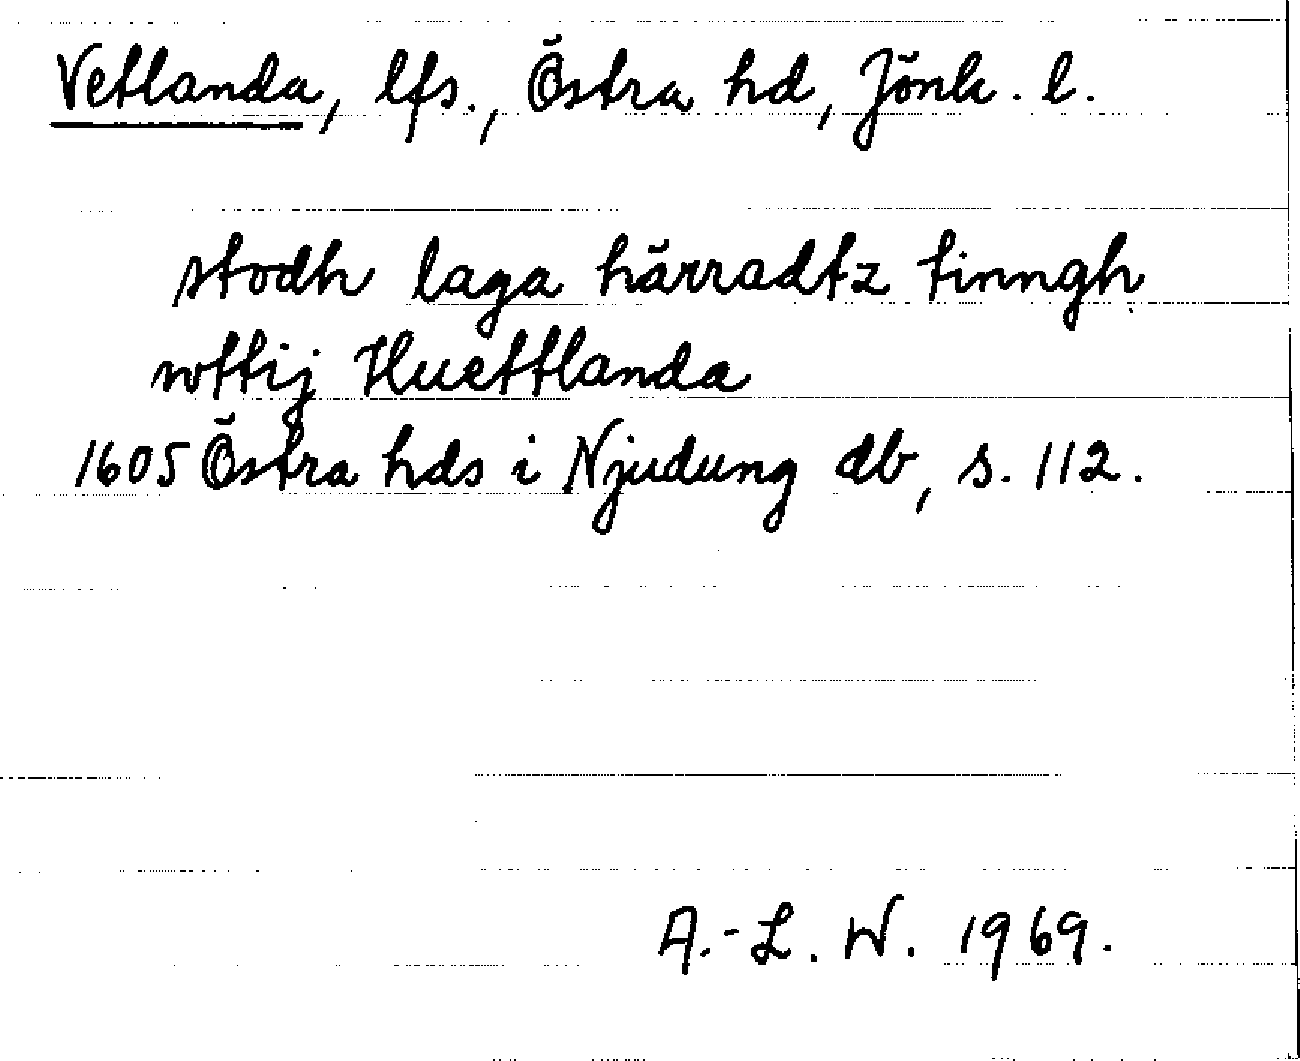 Vetlanda, lfs., Östra hd, Jönk. l.
stodh laga härradtz tinngh
wttij Huettlanda
1605 Östra hds i Njudung db, s. 112.
A.-L. W. 1969.